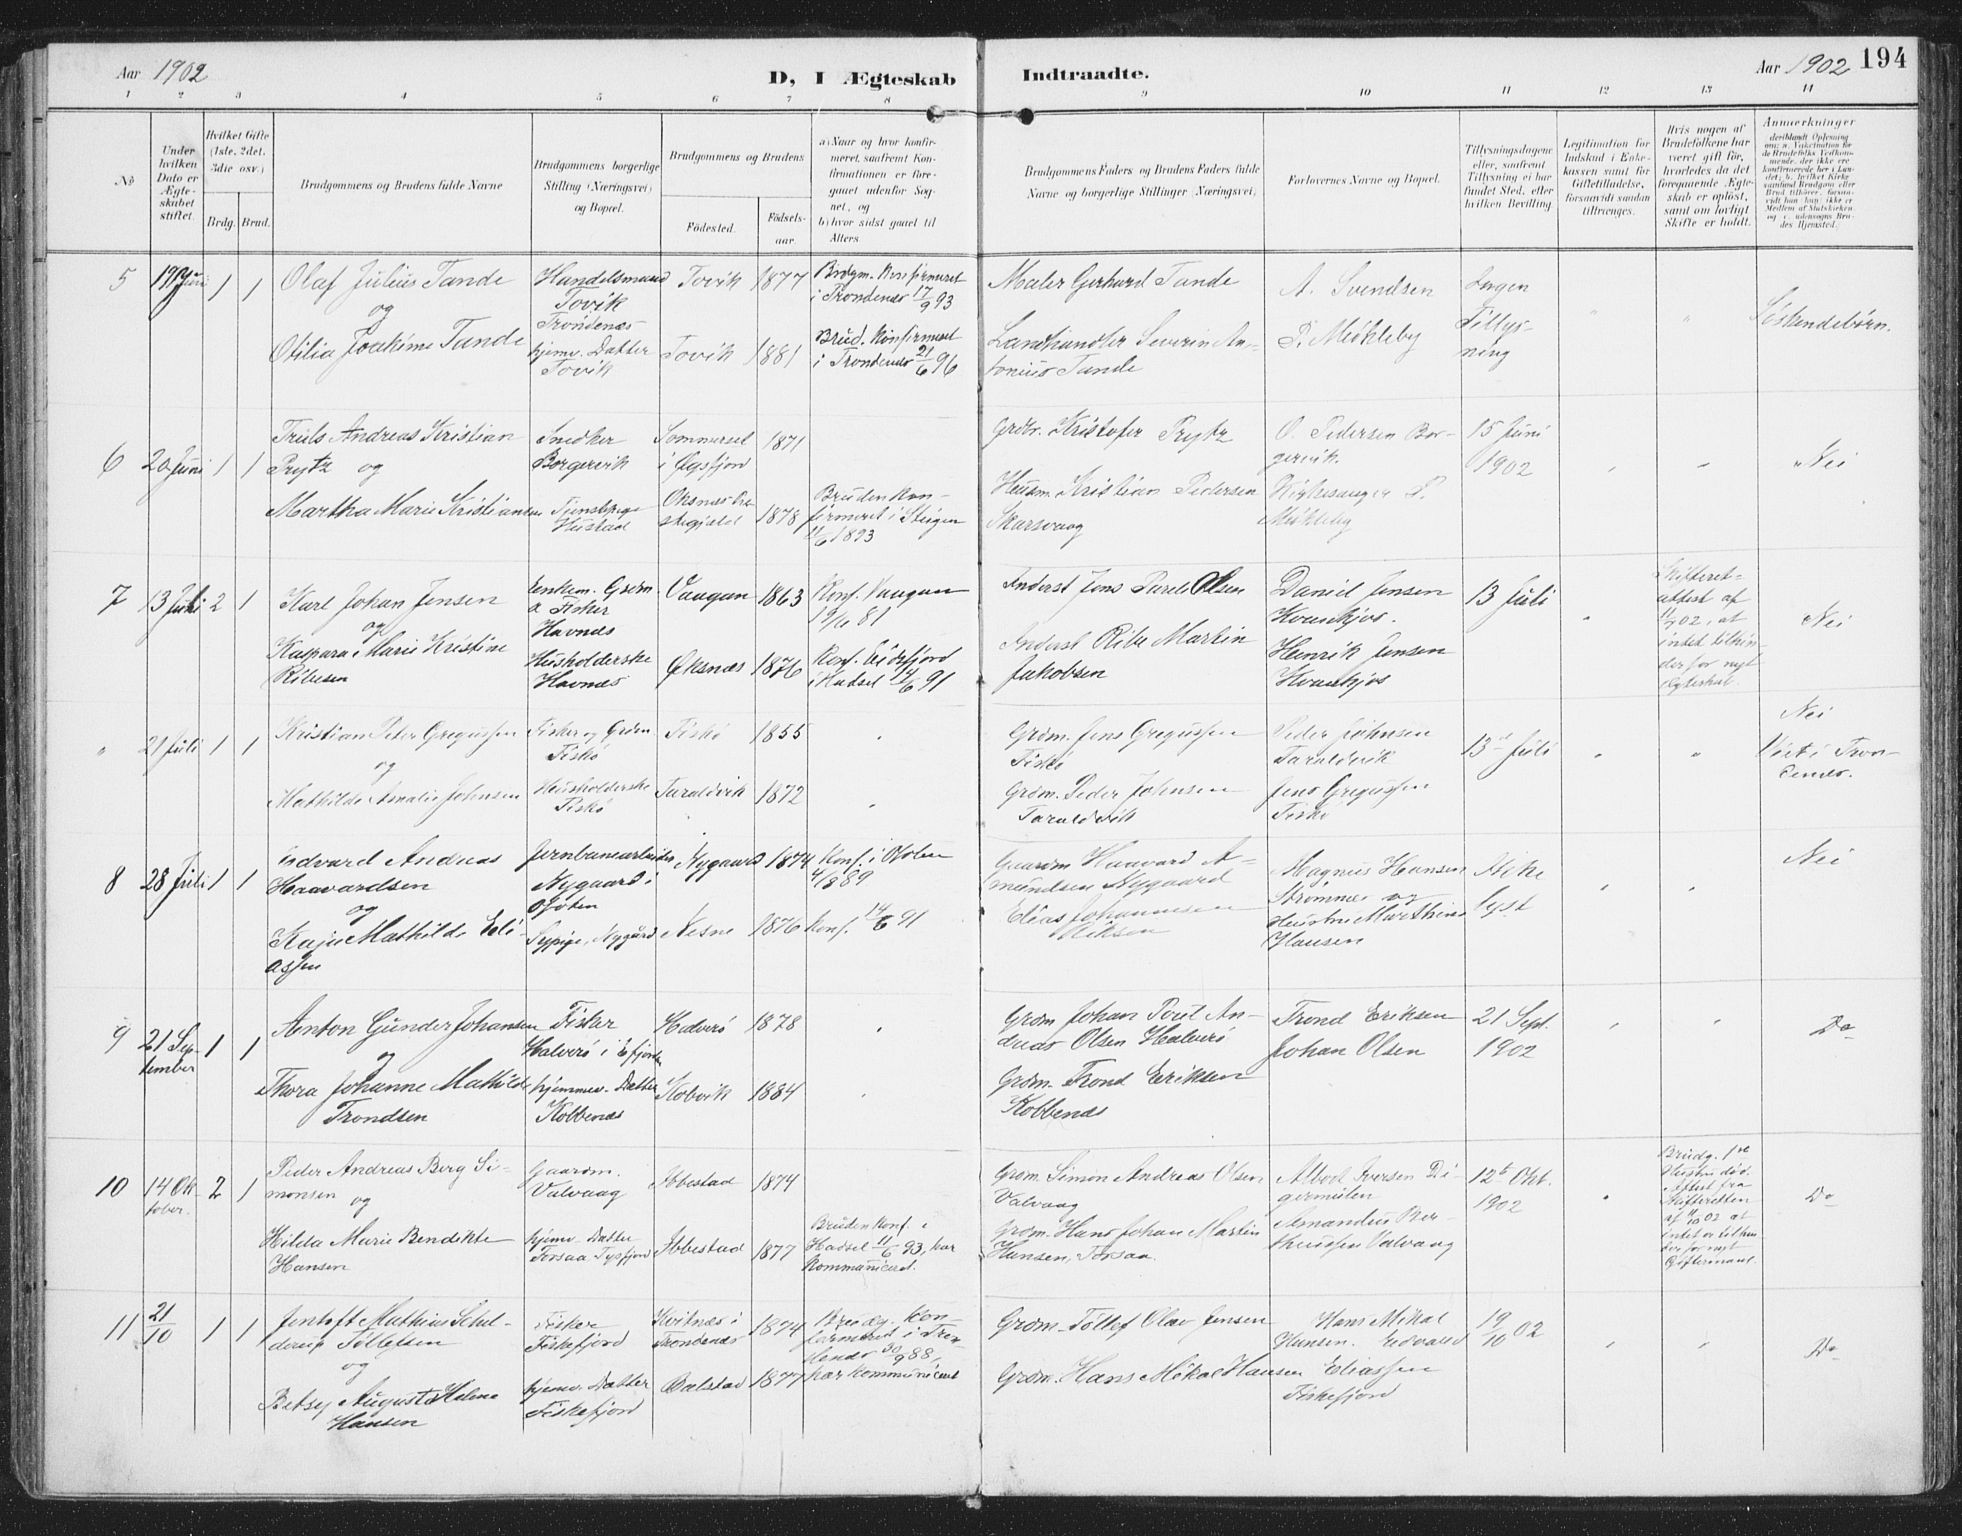 Aar 1902
D, I Ægteskab Indtraadte.
Aar 1902 194
1 2 3 4 5 6 7 8 9 10 11 12 13 14
No
Under hvilken Dato er Ægteskabet stiftet.
Hvilket Gifte (1ste, 2det, 3die osv.)
Brdg. Brud.
Brudgommens og Brudens fulde Navne
Brudgommens borgerlige Stilling (Næringsvei) og Bopæl.
Brudgommens og Brudens
Fødested.
Fødselsaar.
a) Naar og hvor konfirmeret, saafremt Konfirmationen er foregaaet udenfor Sognet, og
b) hvor sidst gaaet til Alters
Brudgommens Faders og Brudens Faders fulde Navne og borgerlige Stillinger (Næringsvei).
Forlovernes Navne og Bopæl.
Tillysningsdagene eller, saafremt Tillysning ei har fundet Sted, efter hvilken Bevilling
Legitimation for Indskud i Enkekassen samt for Giftetilladelse, forsaavidt saadan tiltrænges.
Hvis nogen af Brudefolkene har været gift før, hvorledes da det foregaaende Ægteskab er opløst, samt om lovligt Skifte er holdt.
Anmerkninger
5 19 Juni 1 1
Olaf Julius Tande
og
Otilia Joakime Tande
Handelsmand
Tovik
Trondenæs
hjemv. Datter
Tovik
Tovik 1877
Tovik 1881
Brdgm. Konfirmeret
i Trondenæs 17/9 93
Brud. Konfirmeret
i Trondenæs 21/6 96
Maler Gerhard Tande
Landhandler Severin An-
tonius Tande
A. Svendsen
P. Møkleby
Ingen
Tillys-
ning
Söskendebörn.
6 20 Juni 1 1
Truls Andreas Kristian
Prytz og
Martha Marie Kristiansen
Snedker
Borgervik
Tjenstepige
Hustad
Sommersel
i Øgsfjord
Øksnæs Pre-
stegjeld
1871
1878
Bruden Kon-
firmeret i Steigen
11/6 1893
Grdbr. Kristofer Prytz
Husm. Kristian Pedersen
Skarsvaag
O. Pedersen Bor-
gervik.
Kirkesanger P.
Møkleby
15 Juni
1902
Nei
7 13 Juli 2 1
Karl Johan Jensen
og
Kaspara Marie Kristine
Ribesen
Enkem. Grdm.
& Fisker
Havnæs
Husholderske
Havnæs
Vaagan 1863
Øksnæs 1876
Konf. Vaagan
Konf. Eidsfjord
i Hadsel 14/6 91
Inderst Jens Pareli Olsen
Inderst Ribe Martin
Jakobsen
Daniel Jensen
Kvankjos.
Henrik Jensen
Kvankjos
13 Juli
Skifteret-
attest af
11/7 02, at
intet tilhin-
der for nyt
Ægteskab.
Nei
" 21 Juli 1 1
Kristian Peter Gregussen
og
Mathilde Amalie Johnsen
Fisker og Grdm.
Fiskö
Husholderske
Fiskö
Fiskö 1855
Taraldvik 1872
Grdm. Jens Gregussen
Fiskö
Grdm. Peder Johnsen
Taraldvik
Peder Johnsen
Taraldvik
Jens Gregussen
Fiskö
13de Juli
Nei
Viet i Tron-
denæs.
8 28 Juli 1 1
Edvard Andreas
Haavardsen
og
Kaja Mathilde Eli-
assen
Jernbanearbeider
Nygaard i
Ofoten
Sypige, Nygård
Nygaard 1874
Nesne 1876
Konf. i Ofoten
4/8 89
Konf. 14/6 91
Gaardm Haavard A-
mundsen Nygaard
Elias Johannesen
Magnus Hansen
Strømnes og
Hustru Marthine
Hansen
Ikke
lyst
Nei
9 21 Sep-
tember 1 1
Anton Gunder Johansen
og
Thora Johanne Mathilde
Trondsen
Fisker
Halverö i Efjorden
hjemmev. Datter
Kobbenæs
Halverö 1878
Kobvik 1884
Grdm Johan Peter An-
dreas Olsen Halverö
Grdm. Trond Eriksen
Kobbenæs
Trond Eriksen
Johan Olsen
21 Sept.
1902
Do
10 14 Ok-
tober. 2 1
Peder Andreas Berg Si-
monsen
og
Hilda Marie Bendikte
Hansen
Gaardm.
Valvaag
hjemv. Datter
Torsaa Tysfjord
Ibbestad 1874
Ibbestad 1877
Bruden Konf. i
Hadsel 11/6 93, har
kommuniceret.
Grdm Simon Andreas Olsen
Valvaag
Grdm. Hans Johan Martin
Hansen, Torsaa.
Albert Iversen Di-
germulen
Amandus Ber-
theussen Valvaag
12te Okt.
1902
Brudg. 1ste
Hustru død.
Attest fra
Skifteretten
af 9/10 02 at
intet er tilhin-
der for nyt
Giftermaal.
Do
11 21/10 1 1
Jentoft Mathias Schel-
derup Tollefsen
og
Betsy Augusta Helena
Hansen
Fisker
Fiskefjord
hjemv. Datter
Fiskefjord
Kvitnæs i
Trondenæs
1874
Balstad 1877
Brudg. Kon-
firmeret i Tron-
denæs 30/9 88,
har kommuniceret
Grdm. Tollef Olai Jensen
Grdm. Hans Mikal Hansen
Hans Mikal
Hansen. Edvard
Eliassen
Fiskefjord
19/10 02
Do